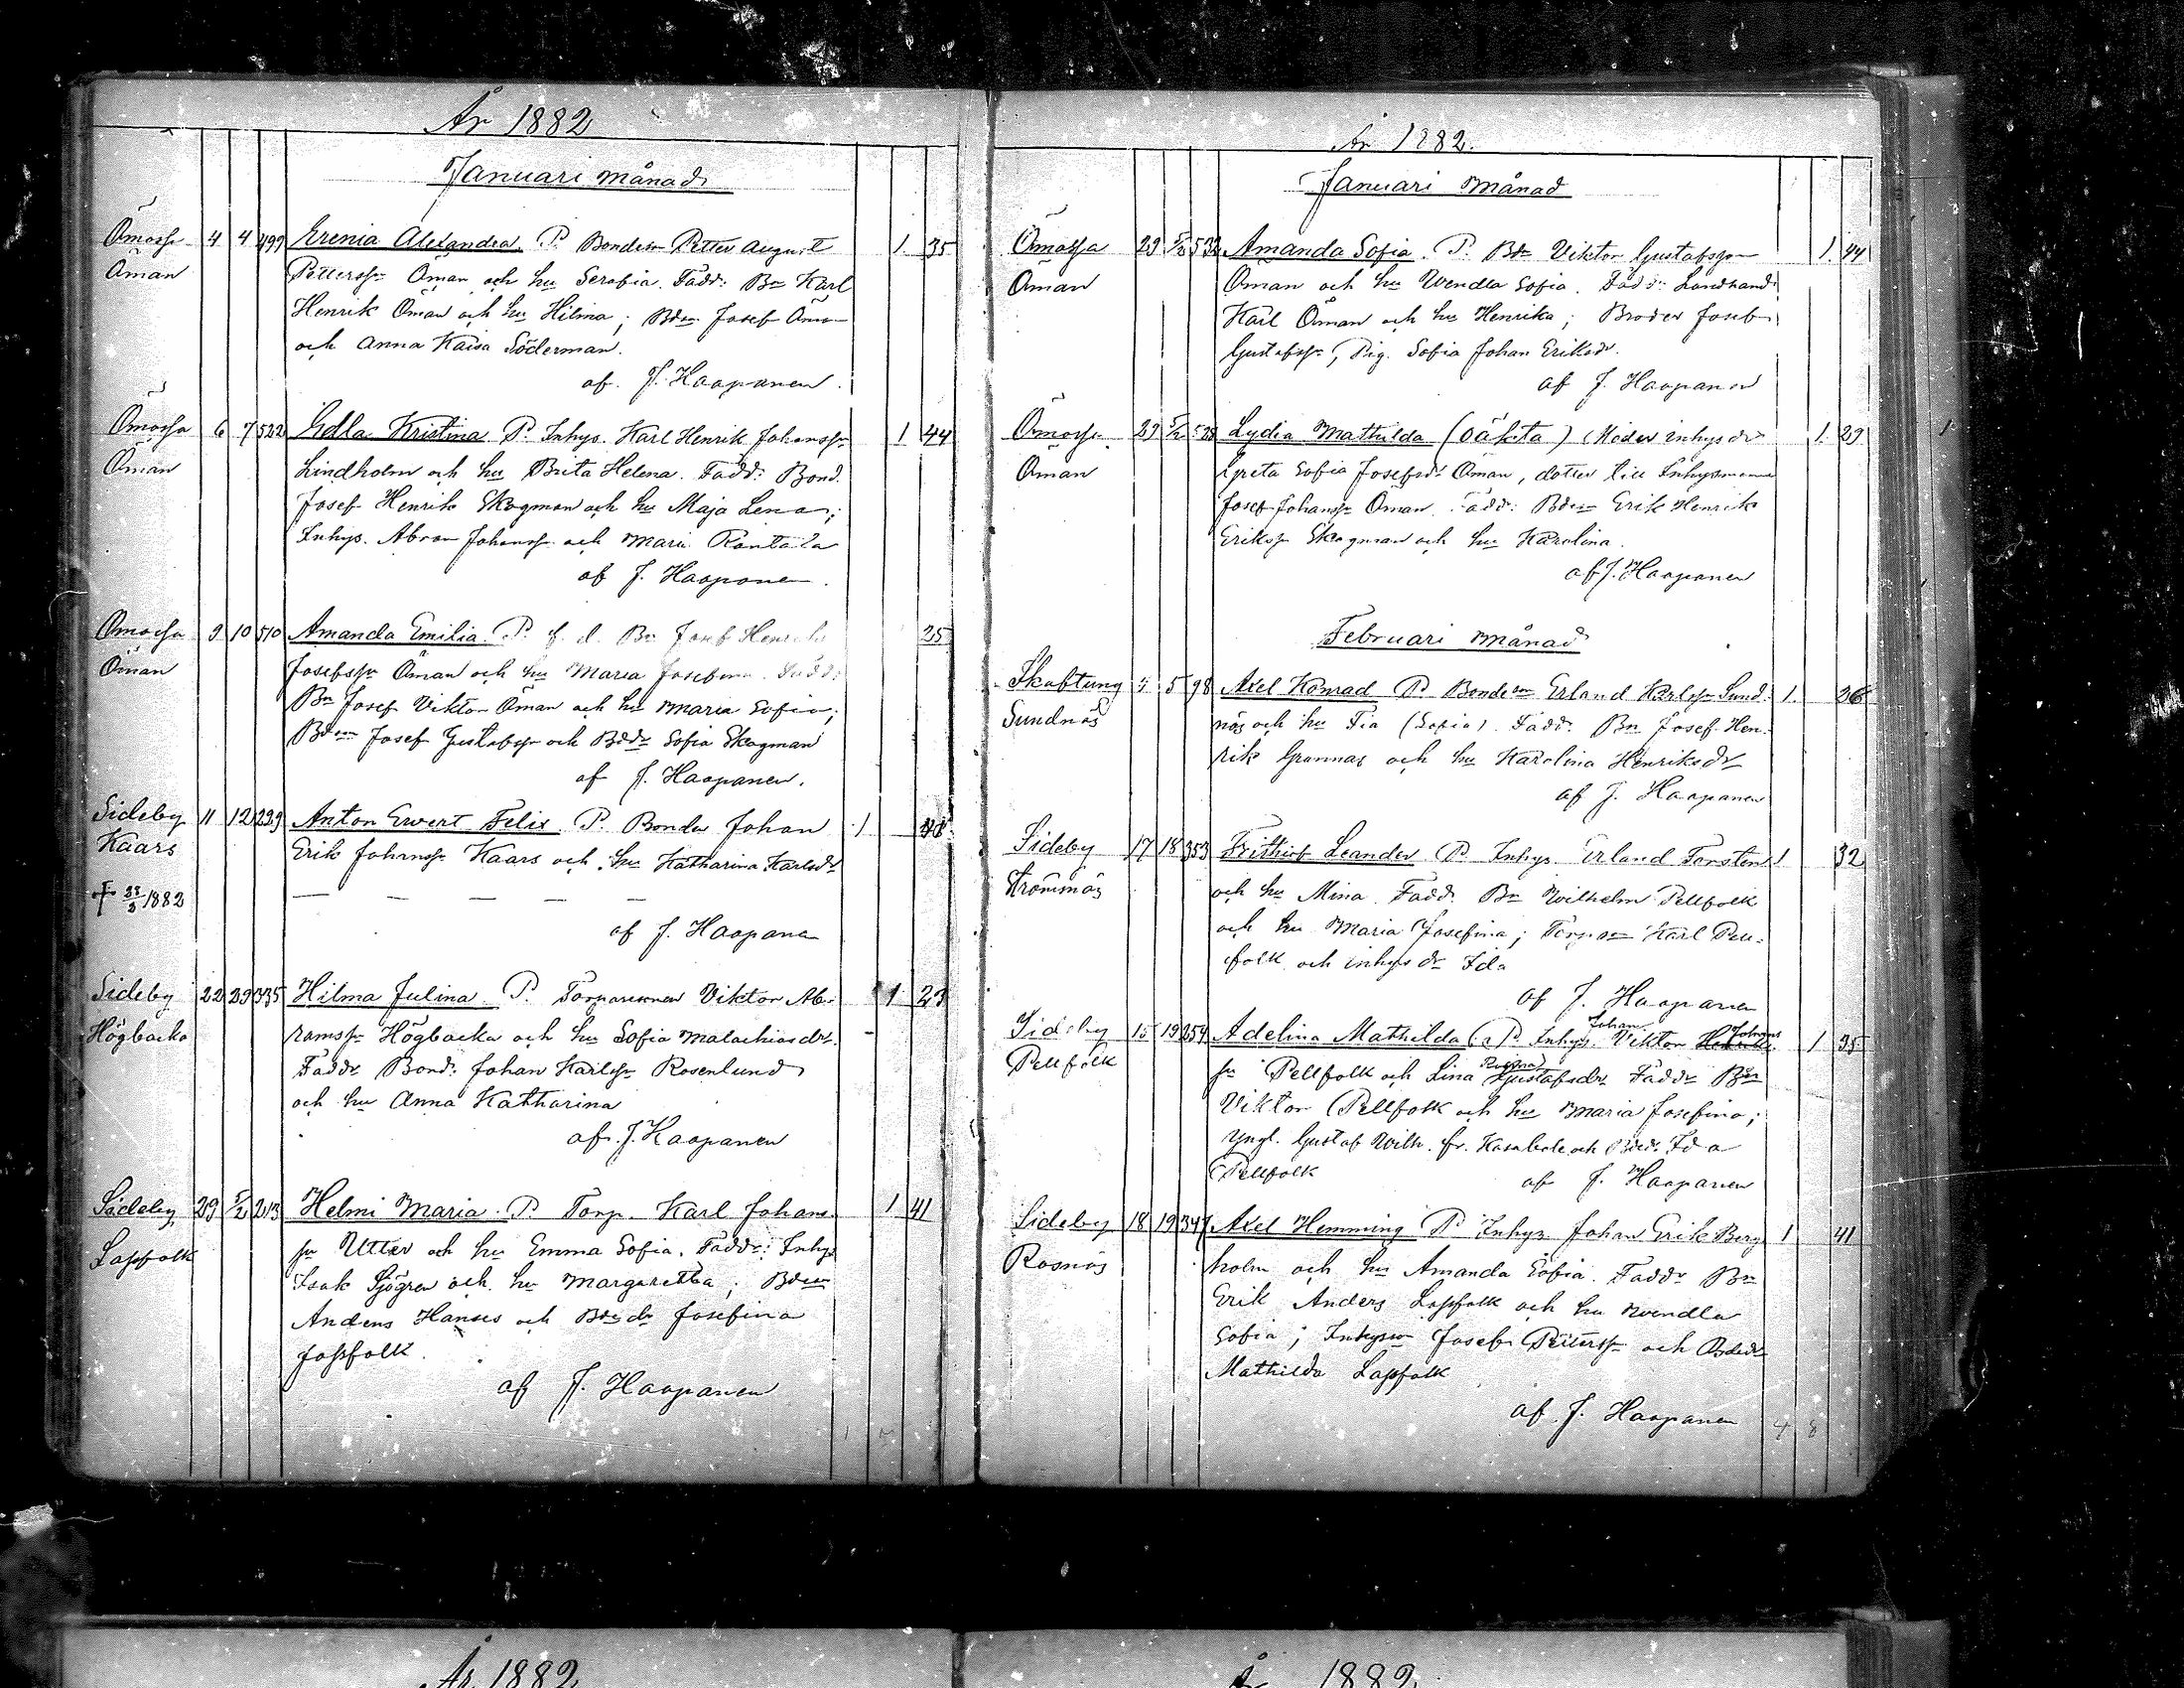 År 1882
Januari månad
Ömossa 4 4 499 Erenia Alexandra P. Bonden Petter August 1 35
Öman Pettersson Öman och hu Serafia. Fadd: Bn Karl
Henrik Öman och hu Hilma; Bdson Josef Öman
och Anna Kaisa Söderman.
af J. Haapanen
Ömossa 6 7 522 Edla Kristina P. Inhys. Karl Henrik Johanss. 1 44
Öman Lindholm och hu Brita Helena. Fadd: Bond.
Josef Henrik Skogman och hu Maja Lena;
Inhys. Abram Johanss. och Maria Rantala
af J. Haapanen.
Ömossa 9 10 510 Amanda Emilia P. f. d. Bn Josef Henrik 25
Öman Josefss. Öman och hu Maria Josefina. Fadd:
Bn Josef Viktor Öman och hu Maria Sofia;
Bdson Josef Gustafss. och Bddr Sofia Skogman
af J. Haapanen.
Sideby 11 12 229 Anton Evert Felix P. Bonden Johan 1
Kaars Erik Johanss. Kaars och hu Katharina Karlsdr
† 23/3 1882 — — — — —
af J. Haapanen
Sideby 22 29 335 Hilma Julina P. Torparesonen Viktor Ab- 1 23
Högbacka ramss. Högbacka och hu Sofia Malachiasdr.
Faddr Bond: Johan Karlss. Rosenlund
och hu Anna Katharina
af J. Haapanen
Sideby 29 5/2 213 Helmi Maria P. Torp. Karl Johans- 1 41
Lassfolk sn Utter och hu Emma Sofia. Faddr: Inhys
Isak Sjögren och hu Margaretha; Bdson
Anders Hanses och Bddr Josefina
Lassfolk.
af J. Haapanen
År 1882.
Januari månad
Ömossa 29 5/2 532 Amanda Sofia P. Bdn Viktor Gustafsson 1 44
Öman Öman och hu Wendla Sofia. Faddr Landhandl
Karl Öman och hu Henrika; Broder Josef
Gustafss., Pig. Sofia Johan Eriksdr.
af J. Haapanen
Ömossa 29 5/2 Lydia Mathilda (oäkta) Moder inhysdr 1 29
Öman Greta Sofia Josefsdr Öman, dotter till Inhysman
Josef Johanss. Öman. Fadd: Bdson Erik Henrik
Erikss. Skogman och hu Karolina.
af J. Haapanen
Februari månad
Skaftung 5 98 Axel Konrad P. Bondeson Erland Karlss. Sund- 1. 26
Sundnäs näs och hu Fia (Sofia). Fadd: Bn Josef Hen-
rik Grannas och hu Karolina Henriksdr
af J. Haapanen
Sideby 17 18 353 Frithiof Leander P. Inhys. Erland Torsten 1 32
Strömmäs och hu Mina. Fadd: Bn Wilhelm Pellfolk
och hu Maria Josefina; Torpson Karl Pell-
folk och inhysdr Ida
af J. Haapanen
Sideby 15 19 259 Adelina Mathilda P. Inhys. Johan Viktor Johans 1 35
Pellfolk sn Pellfolk och Lina Gustafsdr Faddr Bdn
Viktor Pellfolk och hu Maria Josefina;
Yngl. Gustaf Wilh. fr. Kasaböle och Bddr Ida
Pellfolk
af J. Haapanen
Sideby 18 19 347 Axel Hemming P. Inhys Johan Erik Berg 1 41
Rosnäs holm och hu Amanda Sofia. Faddr Bn
Erik Anders Lassfolk och hu Wendla
Sofia; Inhysson Josef Petterss. och Bddr
Mathilda Lassfolk
af J. Haapanen
4 8
År 1882
År 1882